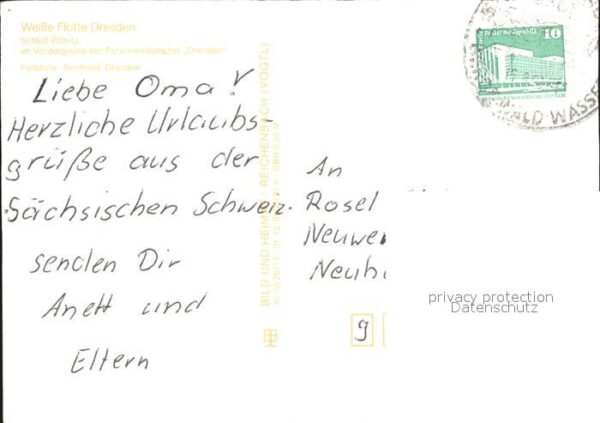 Weiße Flotte Dresden
Schloß Pillnitz,
im Vordergrund der Personendampfer „Dresden"
Farbfoto: Berthold, Dresden
Liebe Oma!
Herzliche Urlaubs-
grüße aus der
Sächsischen Schweiz.
senden Dir
Anett und
Eltern
BILD UND HEIMAT REICHENBACH (VOGTL)
An
Rosel
9
10
WASSE
privacy protection
Datenschutz